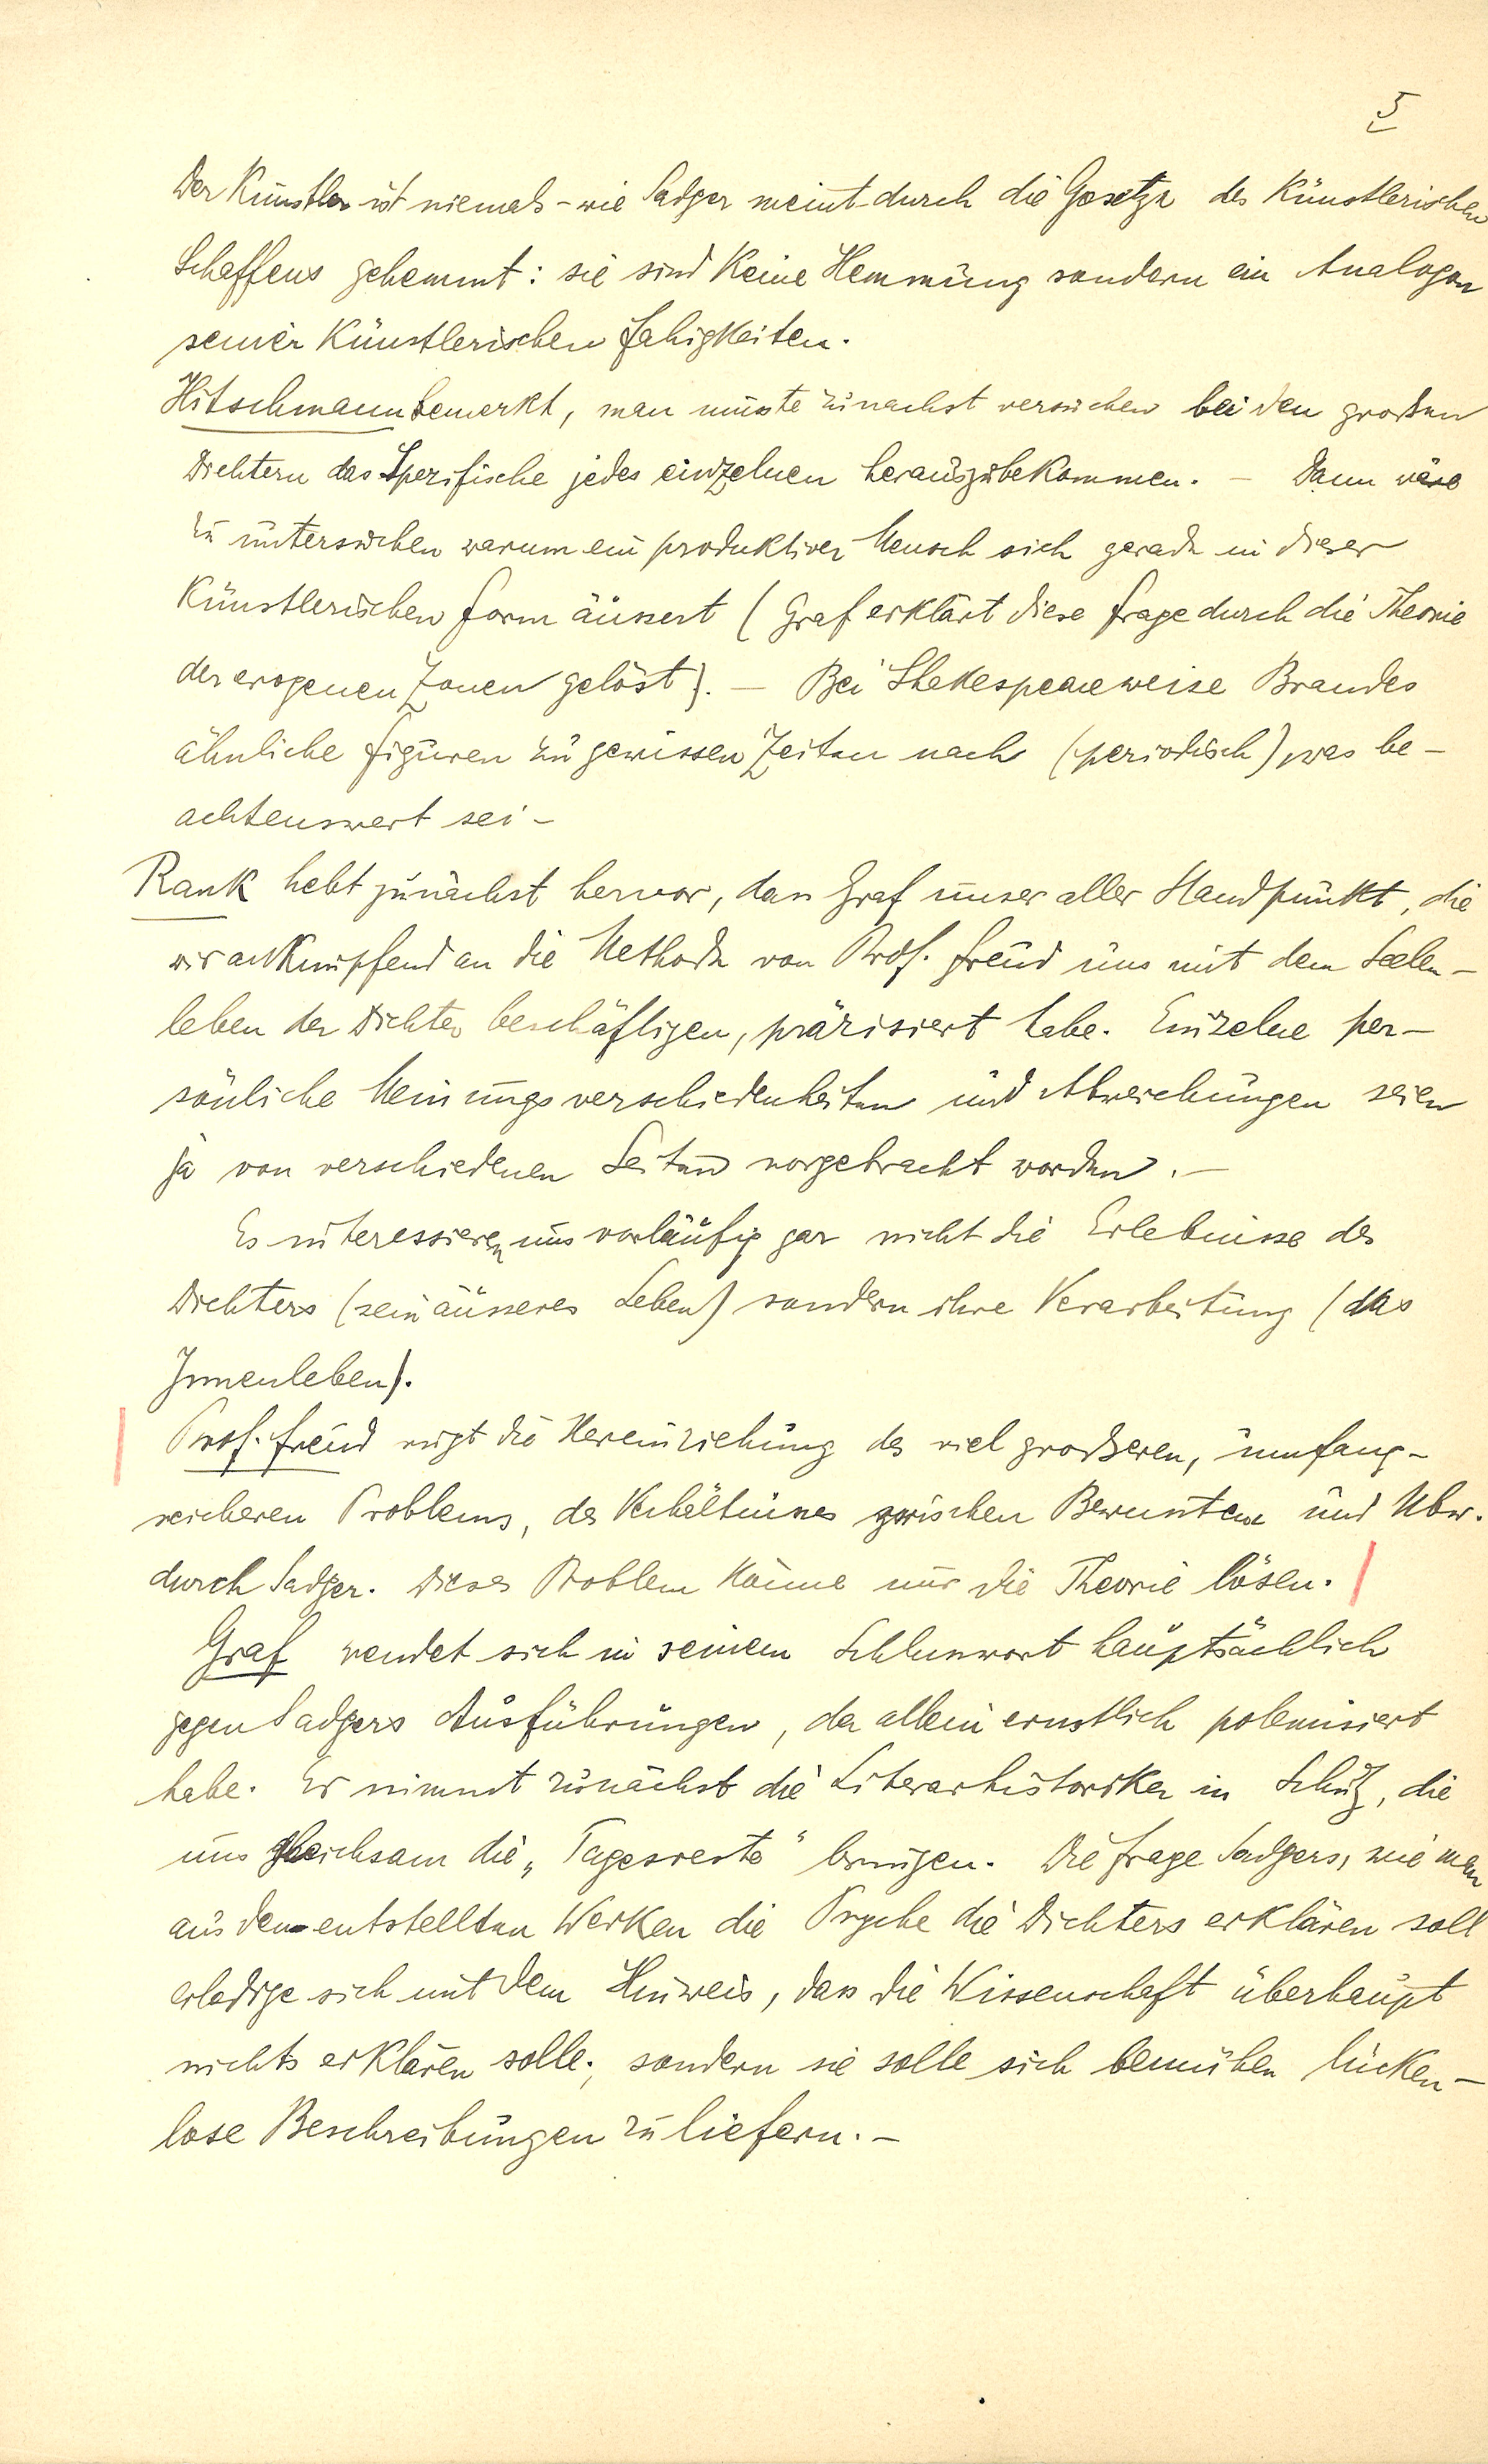 5
Der Künstler ist niemals - wie Sadger meint - durch die Gesetze des Künstlerischen
Schaffens gehemmt: sie sind Keine Hemmung sondern ein Analogon
seiner Künstlerischen Fähigkeiten.
Hitschmann bemerkt, man müsste zunächst versuchen bei den großen
Dichtern das Spezifische jedes einzelnen herauszubekommen. - Dann wäre
zu untersuchen warum ein produktiver Mensch sich gerade in dieser
Künstlerischen Form äussert (Graf erklärt diese Frage durch die Theorie
der erogenen Zonen gelöst). - Bei Shakespeare weise Brandes
ähnliche Figuren zu gewissen Zeiten nach (periodisch), was be-
achtenswert sei -
Rank hebt zunächst hervor, dass Graf unser aller Standpunkt, die
wir anknüpfend an die Methode von Prof. Freud uns mit dem Seelen-
leben der Dichter beschäftigen, präzisiert habe. Einzelne per-
sönliche Meinungsverschiedenheiten und Abweichungen seien
ja von verschiedenen Seiten vorgebracht worden. -
Es interessieren uns vorläufig gar nicht die Erlebnisse des
Dichters (sein äusseres Leben) sondern ihre Verarbeitung (das
Innenleben).
Prof. Freud rügt die Hereinziehung des viel größeren, umfang-
reicheren Problems, des Verhältnisses zwischen Bewussten und Ubw.
durch Sadger. Dieses Problem Könne nur die Theorie lösen.
Graf wendet sich in seinem Schlusswort hauptsächlich
gegen Sadgers Ausführungen, der allein ernstlich polemisiert
habe. Er nimmt zunächst die Literarhistoriker in Schutz, die
uns gleichsam die „Tagesreste" bringen. Die Frage Sadgers, wie man
aus den entstellten Werken die Psyche die Dichters erklären soll
erledige sich mit dem Hinweis, dass die Wissenschaft überhaupt
nichts erklären solle; sondern sie solle sich bemühen lücken-
lose Beschreibungen zu liefern. -